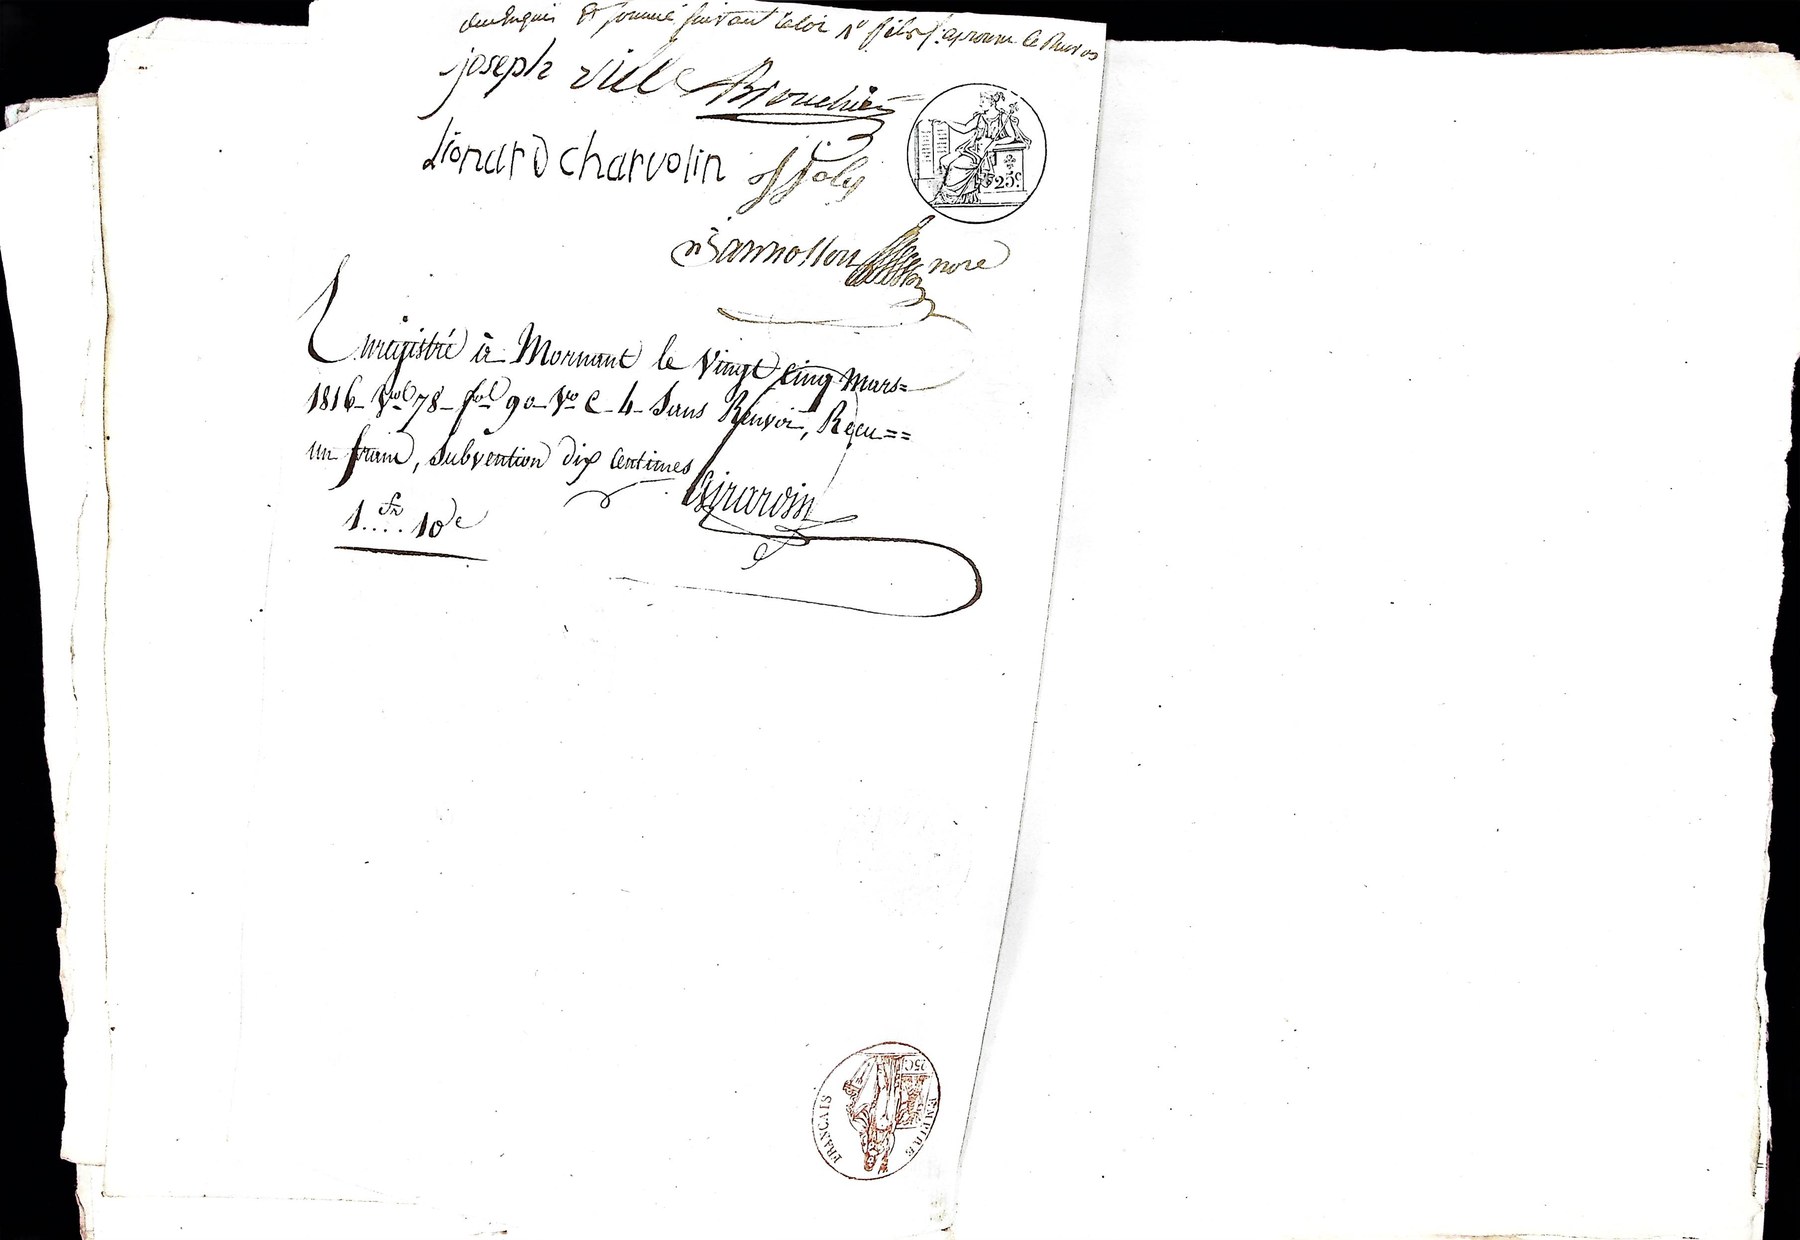 Enquis et sommé suivant la loi
joseph vill Brouchier
Lionard charvolin Joly
nore
25 c.
Enregistré à Mornant le Vingt cinq Mars=
1816 - Vol 78 - fol 90 - Vo C - 4 - Sans Renvoi, Reçu==
un franc, subvention dix Centimes
Girardin
1 fr .... 10 c
EMPIRE FRANÇAIS
25 C